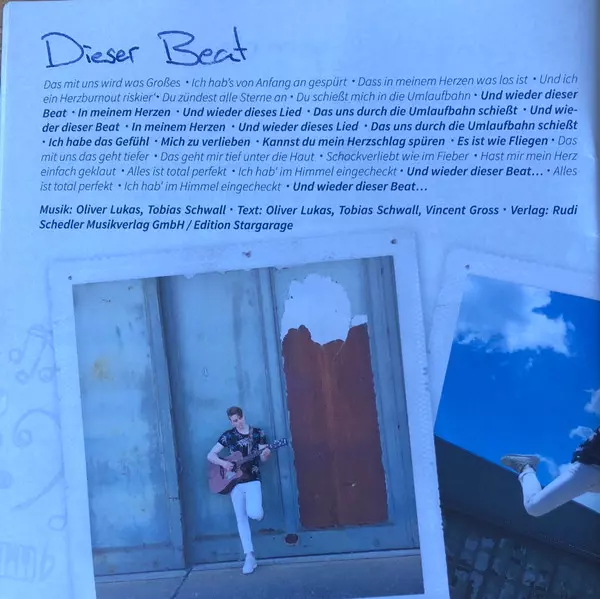 Dieser Beat
Das mit uns wird was Großes • Ich hab's von Anfang an gespürt • Dass in meinem Herzen was los ist • Und ich
ein Herzburnout riskier' • Du zündest alle Sterne an • Du schießt mich in die Umlaufbahn • Und wieder dieser
Beat • In meinem Herzen • Und wieder dieses Lied • Das uns durch die Umlaufbahn schießt • Und wie-
der dieser Beat • In meinem Herzen • Und wieder dieses Lied • Das uns durch die Umlaufbahn schießt
• Ich habe das Gefühl • Mich zu verlieben • Kannst du mein Herzschlag spüren • Es ist wie Fliegen • Das
mit uns das geht tiefer • Das geht mir tief unter die Haut • Schockverliebt wie im Fieber • Hast mir mein Herz
einfach geklaut • Alles ist total perfekt • Ich hab' im Himmel eingecheckt • Und wieder dieser Beat... • Alles
ist total perfekt • Ich hab' im Himmel eingecheckt • Und wieder dieser Beat...
Musik: Oliver Lukas, Tobias Schwall • Text: Oliver Lukas, Tobias Schwall, Vincent Gross • Verlag: Rudi
Schedler Musikverlag GmbH / Edition Stargarage